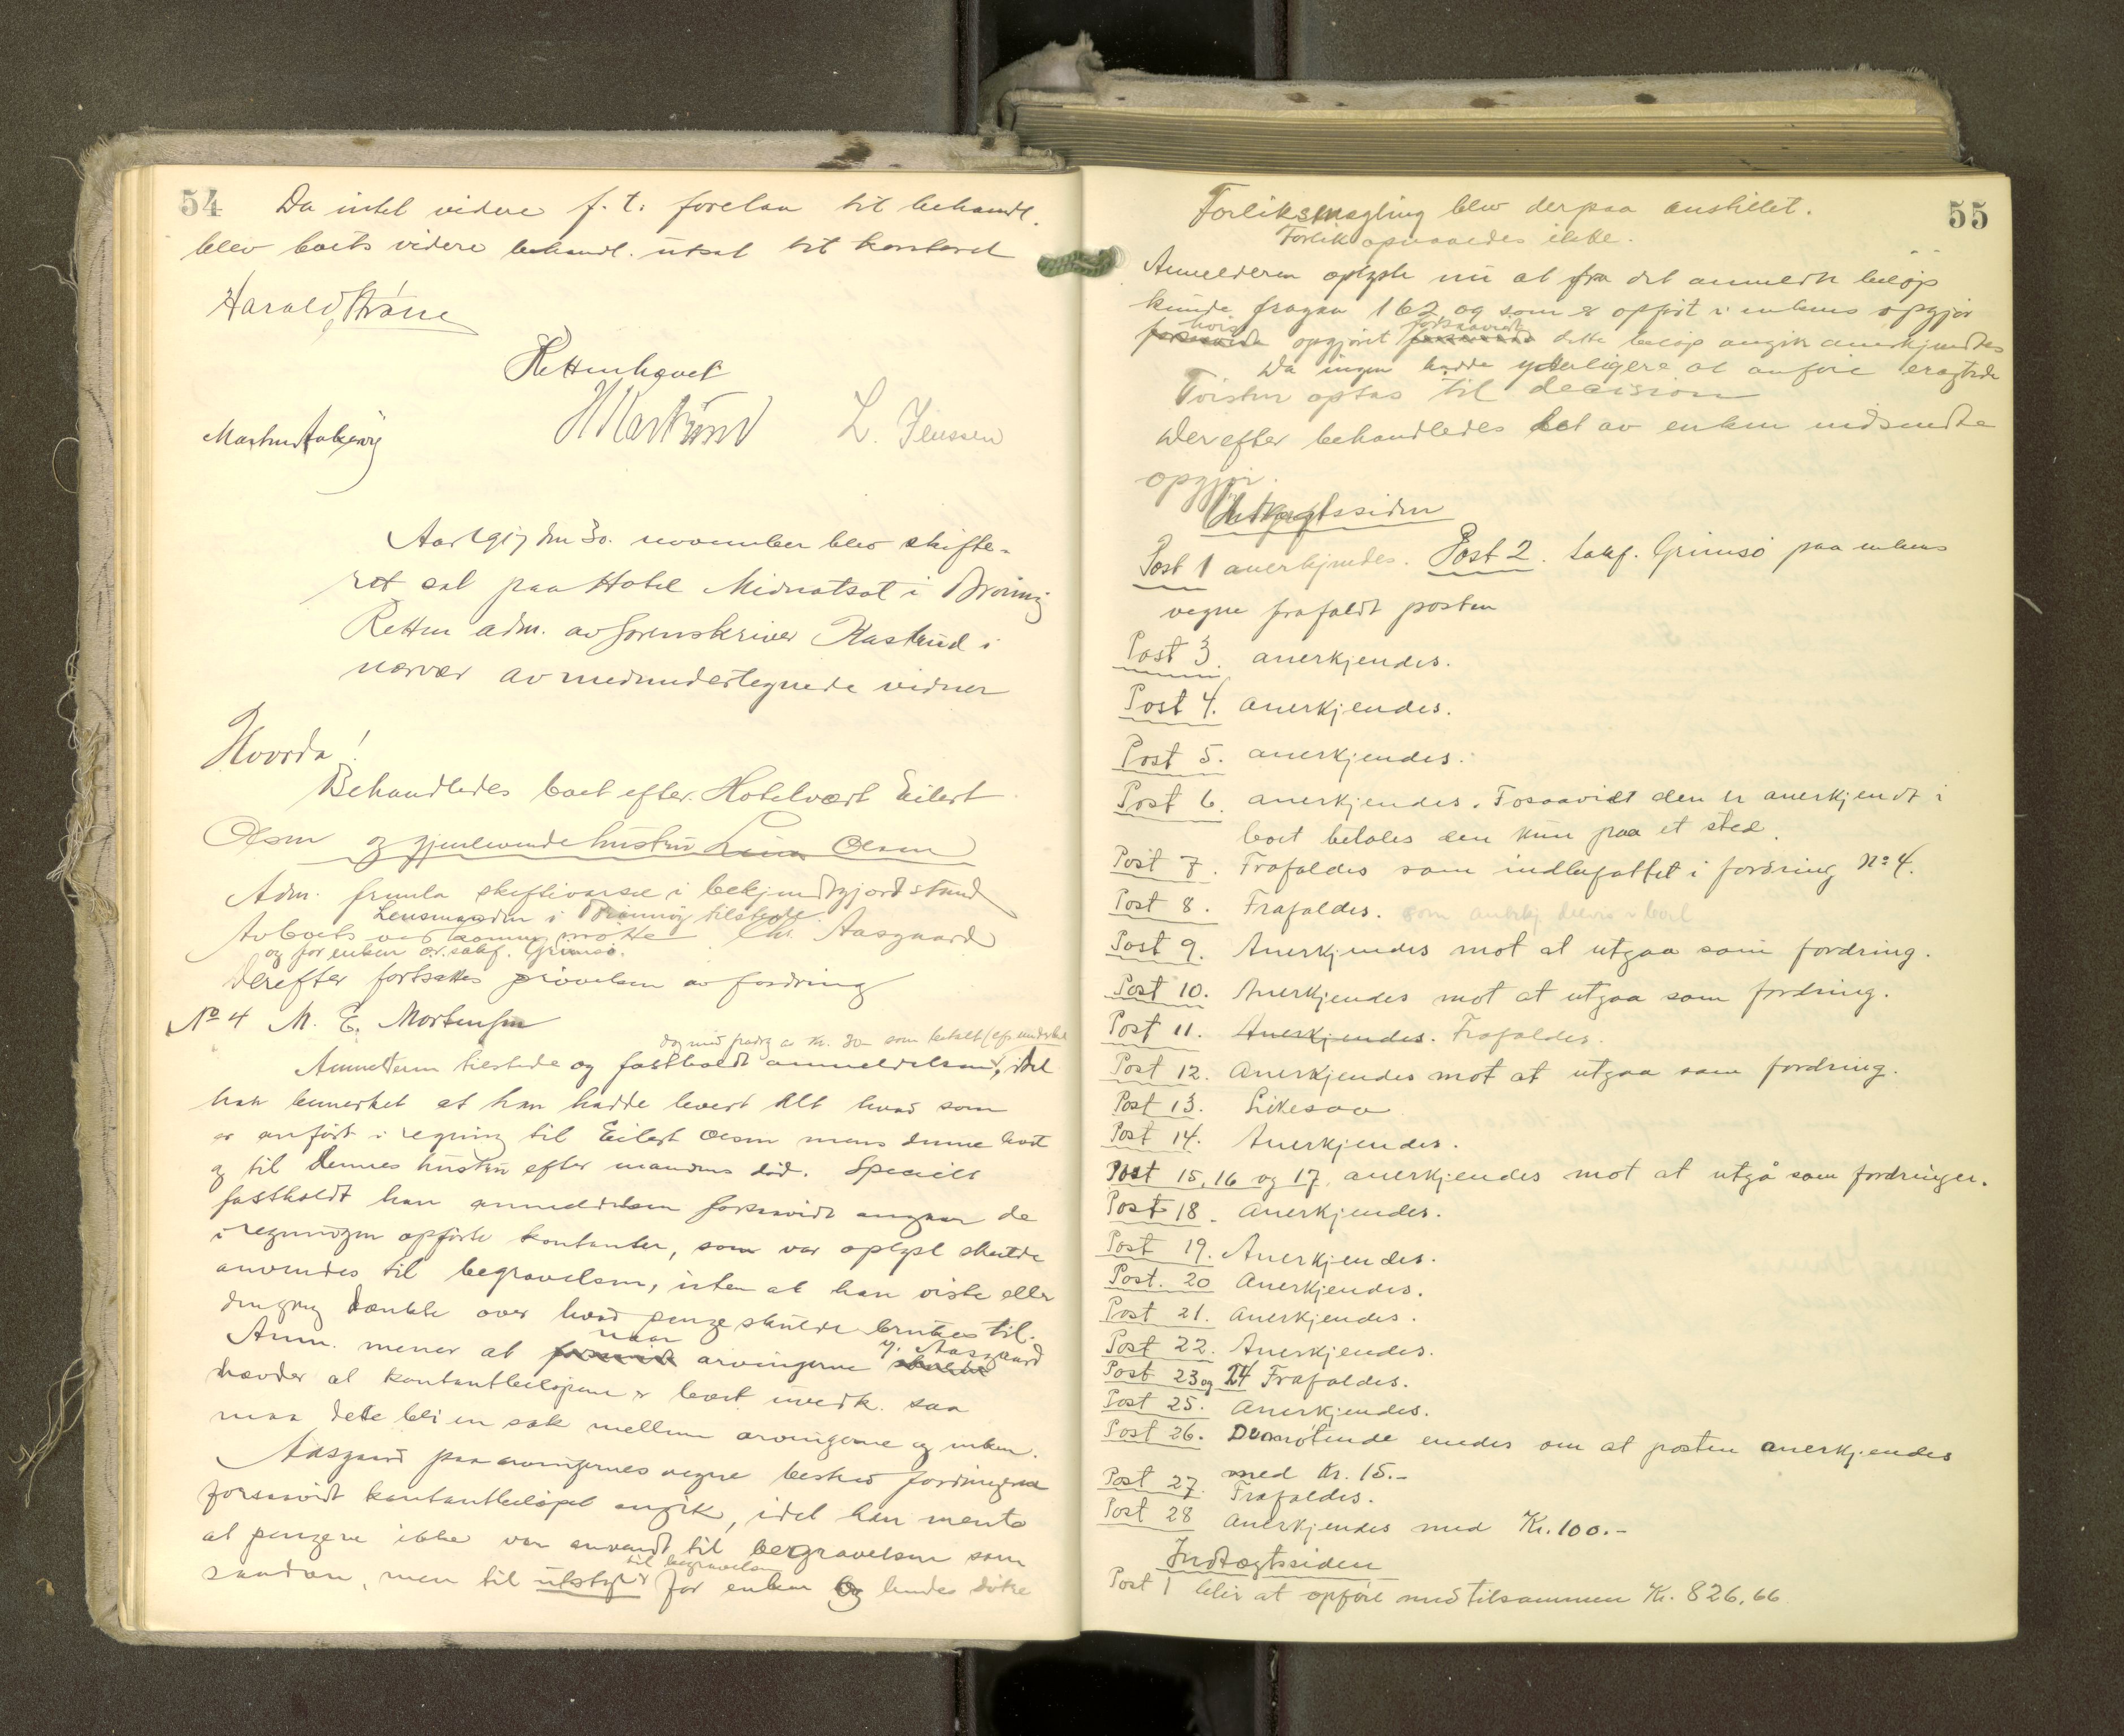 54
Da intet videre f. t. forelaa til behandl.
blev boets videre behandl. utsat til
Harald
Retten hævet
H Kastrud L. Jenssen
Aar 1917 den 30. november blev skifte-
ret sat paa Hotel Midnatsol i Brönnöy
Retten adm. av sorenskriver Kastrud i
nærvær av medundertegnede vidner
Hvorda!
Behandledes boet efter Hotelvært Eilert
Olsen og gjenlevende hustru Lina Olsen
Adm. fremla skiftivarsel i bekjendtgjort stand
Lensmanden i Brönnöy tilstede.
Av boets vedkomm. mötte Chr. Aasgaard
og for enken o.r.sakf. Grimsö.
Derefter fortsattes prövelsen av fordring
No 4 M. E. Mortensen
dog med fradrag av kr. 30 som betalt
Anmelderen tilstede og fastholdt anmeldelsen, idet
han bemerket at han hadde levert alt hvad som
er anfört i regning til Eilert Olsen mens denne levet
og til dennes hustru efter mandens död. Specielt
fastholdt han anmeldelsen forsaavidt angaar de
i regningen opförte kontanter, som var oplyst skulde
anvendes til begravelsen, uten at han viste eller
dengang tænkte over hvad penge skulde brukes til.
naar v. Aasgaard
Anm. mener at forsaavidt arvingerne
hævder at kontantbelöpene er boet uvedk. saa
maa dette bli en sak mellem arvingerne og enken.
Aasgaard paa arvingernes vegne bestred fordringen
forsaavidt kontantbelöpet angik, idet han mente
at pengene ikke var anvendt til begravelsen som
til begravelsen
saadan, men til utstyr for enken og hendes dötre
55
Forliksmægling blev derpaa anstillet.
Forlik opnaaedes ikke.
Anmelderen oplyste nu at fra det anmeldte belöp
kunde fragaa 162 og som er opfört i enkens opgjör
hvis forsaavidt
opgjöret dette belöp angik anerkjendtes
Da ingen hadde yderligere at anföre eragtede
Tvisten optas til decision
Derefter behandledes det av enken indsendte
opgjör.
Utgiftssiden
Post 1 anerkjendes. Post 2. Sakf. Grimsö paa enkens
vegne frafaldt posten
Post 3. anerkjendes.
Post 4. anerkjendes.
Post 5. anerkjendes.
Post 6. anerkjendes. Fosaavidt den er anerkjendt i
boet betales den kun paa et sted.
Post 7. Frafaldes som indbefattet i fordring No 4.
Post 8. Frafaldes. som anerkj. i boet
Post 9. Anerkjendes mot at utgaa som fordring.
Post 10. Anerkjendes mot at utgaa som fordring.
Post 11. Anerkjendes. Frafaldes.
Post 12. Anerkjendes mot at utgaa som fordring.
Post 13. Likesaa
Post 14. Anerkjendes.
Post 15, 16 og 17. anerkjendes mot at utgå som fordringer.
Post 18. anerkjendes.
Post 19. Anerkjendes.
Post. 20 Anerkjendes.
Post 21. Anerkjendes.
Post 22. Anerkjendes.
Post 23 og 24 Frafaldes.
Post 25. Anerkjendes.
Post 26. De mötende enedes om at posten anerkjendes
med Kr. 15.-
Post 27. Frafaldes.
Post 28 anerkjendes med Kr. 100.-
Indtægtssiden
Post 1 blir at opföre med tilsammen Kr. 826,66